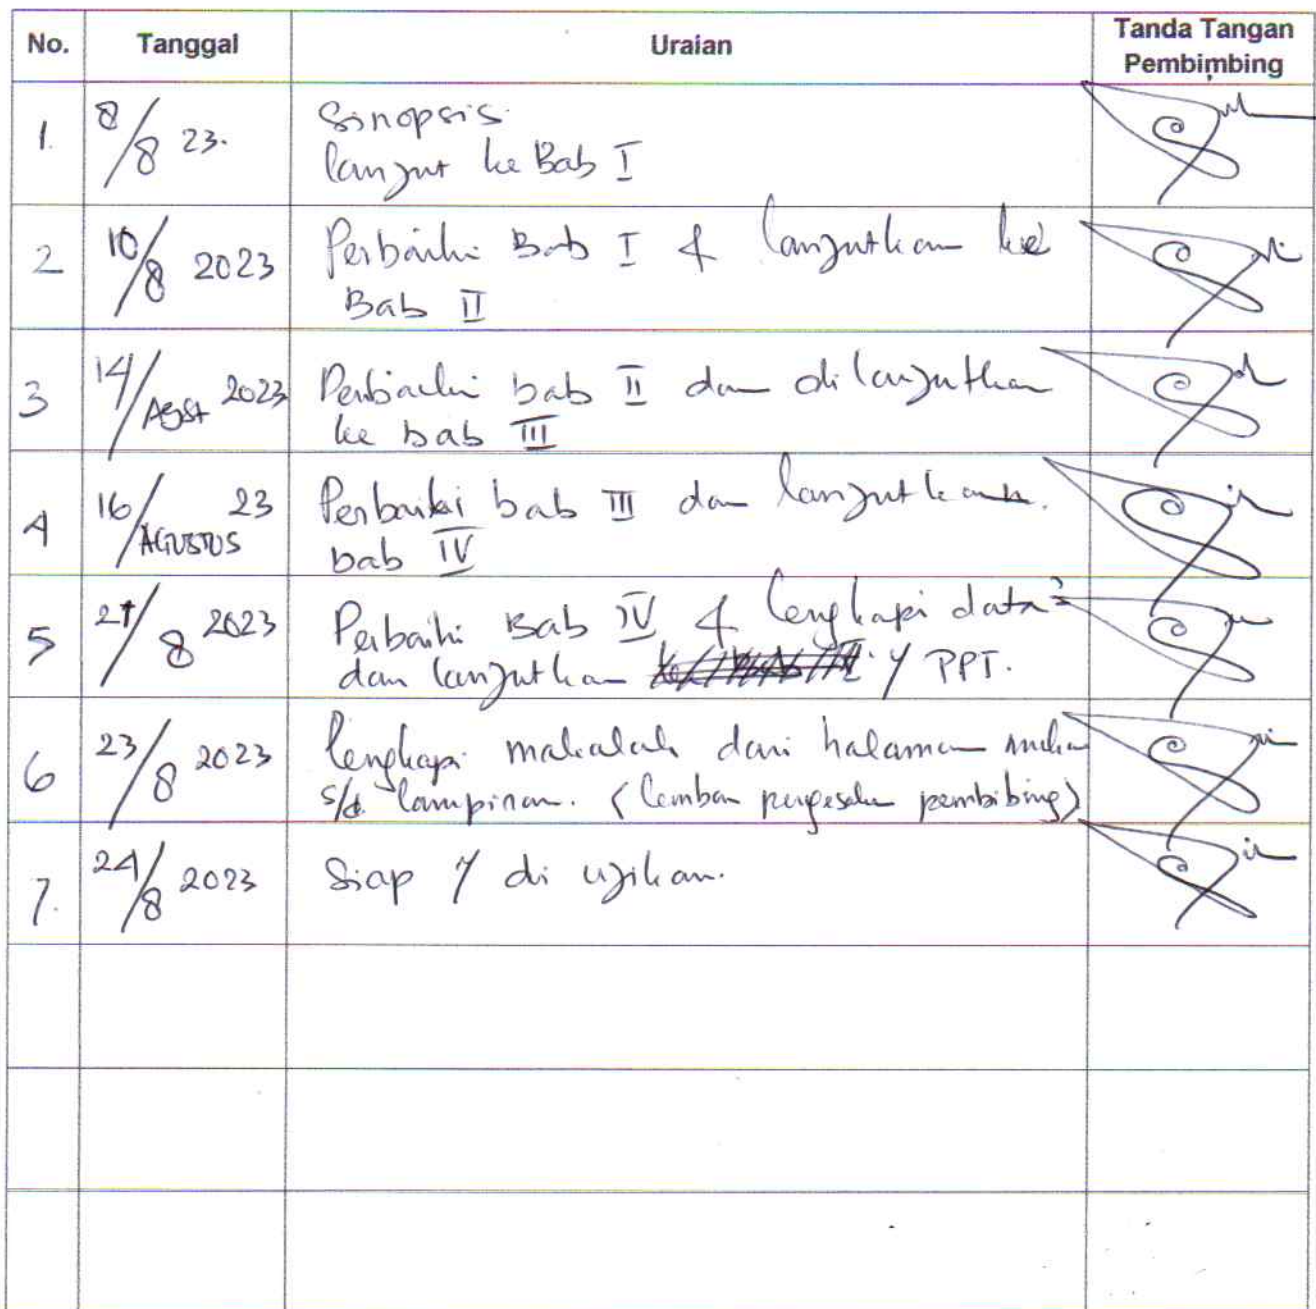 No. Tanggal Uraian Tanda Tangan Pembimbing
1. 8/8 23. Sinopsis
lanjut ke Bab I
2 10/8 2023 Perbaiki Bab I & lanjutkan ke
Bab II
3 14/Agst 2023 Perbaiki bab II dan dilanjutkan
ke bab III
4 16/AGUSTUS 23 Perbaiki bab III dan lanjutkan
bab IV
5 21/8 2023 Perbaiki Bab IV & lengkapi data²
dan lanjutkan y PPT.
6 23/8 2023 lengkapi makalah dari halaman muka
s/d lampiran. (lembar pembibing)
7. 24/8 2023 Siap y di ujikan.